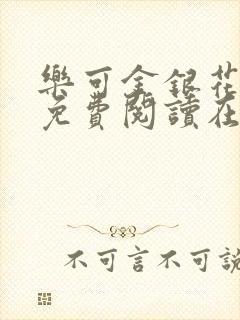 樂可金銀花
免費閱讀在
不可言不可說